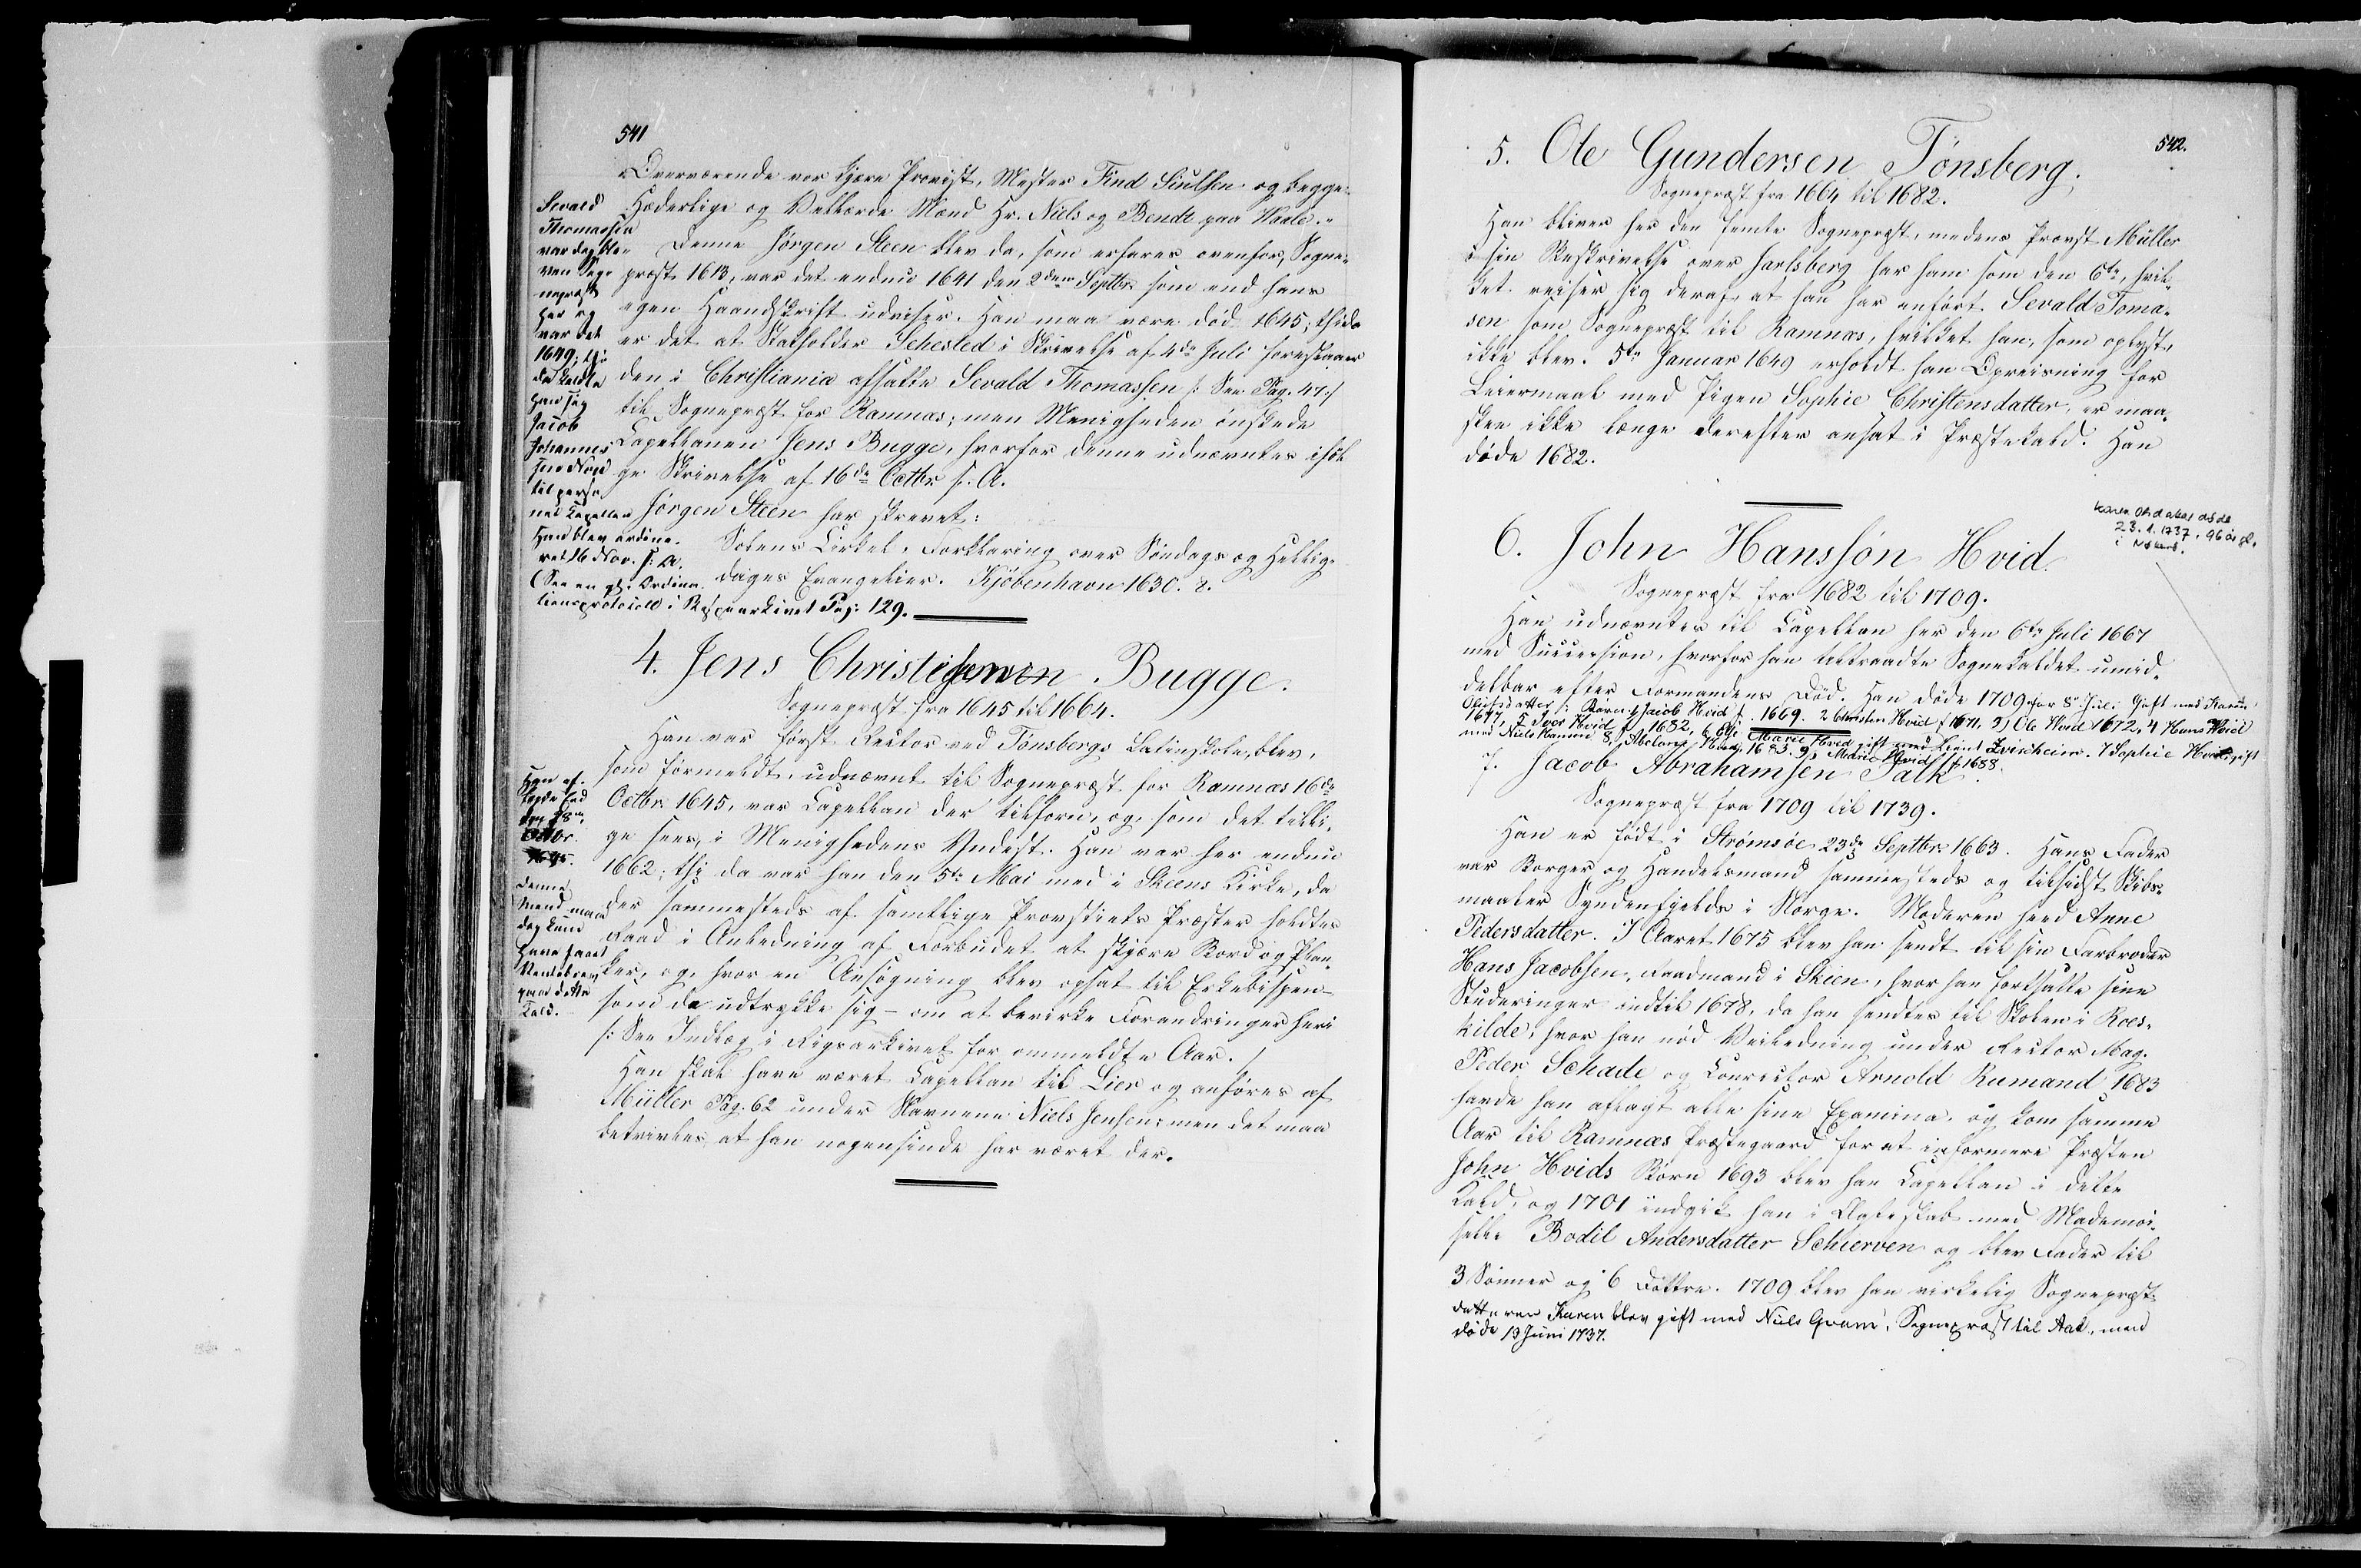 541
Overværende vor kjære Provist, Mester Find Siulsen og begge
Hæderlige og Vellærde Mænd Hr. Niels og Bendt paa Waale.
Denne Jörgen Steen blev da, som erfares ovenfor, Sogne-
præst 1613, var det endnu 1641 den 2den Septbr. som end hans
egen Haandskrift udviser. Han maa være död 1645; thi da
er det at Statholder Sehested i Skrivelse af 4de Juli foreslaaer
den i Christiania afsatte Sevald Thomassen /: See Pag. 47 :/
til Sognepræst for Ramnæs; men Menigheden önskede
Capellanen Jens Bugge, hvorfor denne udnævntes ifölge
ge Skrivelse af 16de Octbr. s. A.
Jörgen Steen har skrevet:
Solens Cirkel. Forklaring over Söndags og Hellig-
dages Evangelier. Kjöbenhavn 1630. 8.
Sevald
Thomassen
var dog ble-
ven Sog-
nepræst
her og
var det
1649; thi
da kaldte
han sig
Jacob
Johannes
til perso-
nel Capellan
Han blev ordine-
ret 16 Nov. s: A.
(See en gl. Ordina-
tionsprotocoll i Bispearkivet Pag: 129.
4. Jens Christensen Bugge.
Sognepræst fra 1645 til 1664.
Han var först Rector ved Tönsbergs Latinskole, blev,
som förmeldt, udnævnt til Sognepræst for Ramnæs 16de
Octbr. 1645, var Capellan der tilforn, og, som det tilli-
ge sees, i Menighedens Yndest. Han var her endnu
1662; thi da var han den 5te Mai med i Skeens Kirke, da
der sammesteds af samtlige Provstiets Præster holdtes
Raad i Anledning af Forbudet at skjære Bord og Plan-
ker, og, hvor en Ansögning blev opsat til Erkebispen –
som de udtrykke sig – om at bevirke Forandringer heri
/: See Indlæg i Rigsarkivet for ommeldte Aar. /
Han skal have været Capellan til Lier og anföres af
Müller Pag. 62 under Navnene Niels Jensen; men det maa
betvivles, at han nogensinde har været der.
Han af-
lagde Eed
den 28de
Octbr.
1645.
Denne
Mand maa
dog kun
have faaet
Ventebrev
paa dette
Kald.
542.
5. Ole Gundersen Tönsberg.
Sognepræst fra 1664 til 1682.
Han bliver her den femte Sognepræst, medens Provst Müller
i sin Beskrivelse over Jarlsberg har ham som den 6te, hvil-
ket reiser sig deraf, at han har anfört Sevald Toma-
sen som Sognepræst til Ramnæs, hvilket han, som oplyst,
ikke blev. 5te Januar 1649 erholdt han Opreisning for
Leiermaal med Pigen Sophie Christensdatter, er maa-
skee ikke længe derefter ansat i Præstekald. Han
döde 1682.
Karen Ols datter döde
23.1.1737, 96 år gl.
i
6. John Hanssön Hvid.
Sognepræst fra 1682 til 1709.
Han udnævntes til Capellan her den 6te Juli 1667
med Succession, hvorfor han tiltraadte Sognekaldet umid-
delbar efter Formandens Död. Han döde 1709 för 8de Juli. Gift med Karen
Olufsdatter /: Börn 1, Jacob Hvid f. 1669. 2 Christen Hvid f 1671, 3) Ole Hvid 1672, 4 Hans Hvid
1677, 5 Iver Hvid f 1682, 6 Marie Hvid gift med Lieut Zvischeim. 7 Sophie Hvid gift
med Niels 8, Abelone Hvid, 1685. 9, Marie Hvid f 1688.
7. Jacob Abrahamsen Falk.
Sognepræst fra 1709 til 1739.
Han er födt i Strömsöe 23de Septbr. 1663. Hans Fader
var Borger og Handelsmand sammesteds og tilsidst Skibs-
maaler Syndenfjelds i Norge. Moderen heed Anne
Pedersdatter. I Aaret 1675 blev han sendt til sin Farbroder
Hans Jacobsen, Raadmand i Skien, hvor han fortsatte sine
Studeringer indtil 1678, da han sendtes til Skolen i Roes-
kilde, hvor han nöd Veiledning under Rector Mag.
Peder Schade og Conrector Arnold Rumand. 1683
havde han aflagt alle sine Examina, og kom samme
Aar til Ramnæs Præstegaard for at informere Præsten
John Hvids Börn 1693 blev han Capellan i dette
Kald, og 1701 indgik han i Ægteskab med Mademoi-
selle Bodil Andersdatter Schierven og blev Fader til
3 Sönner og 6 Döttre. 1709 blev han virkelig Sognepræst.
Datteren Karen blev gift med Niels Gram, Sognepræst til Aal, men
döde 19 Juni 1737.